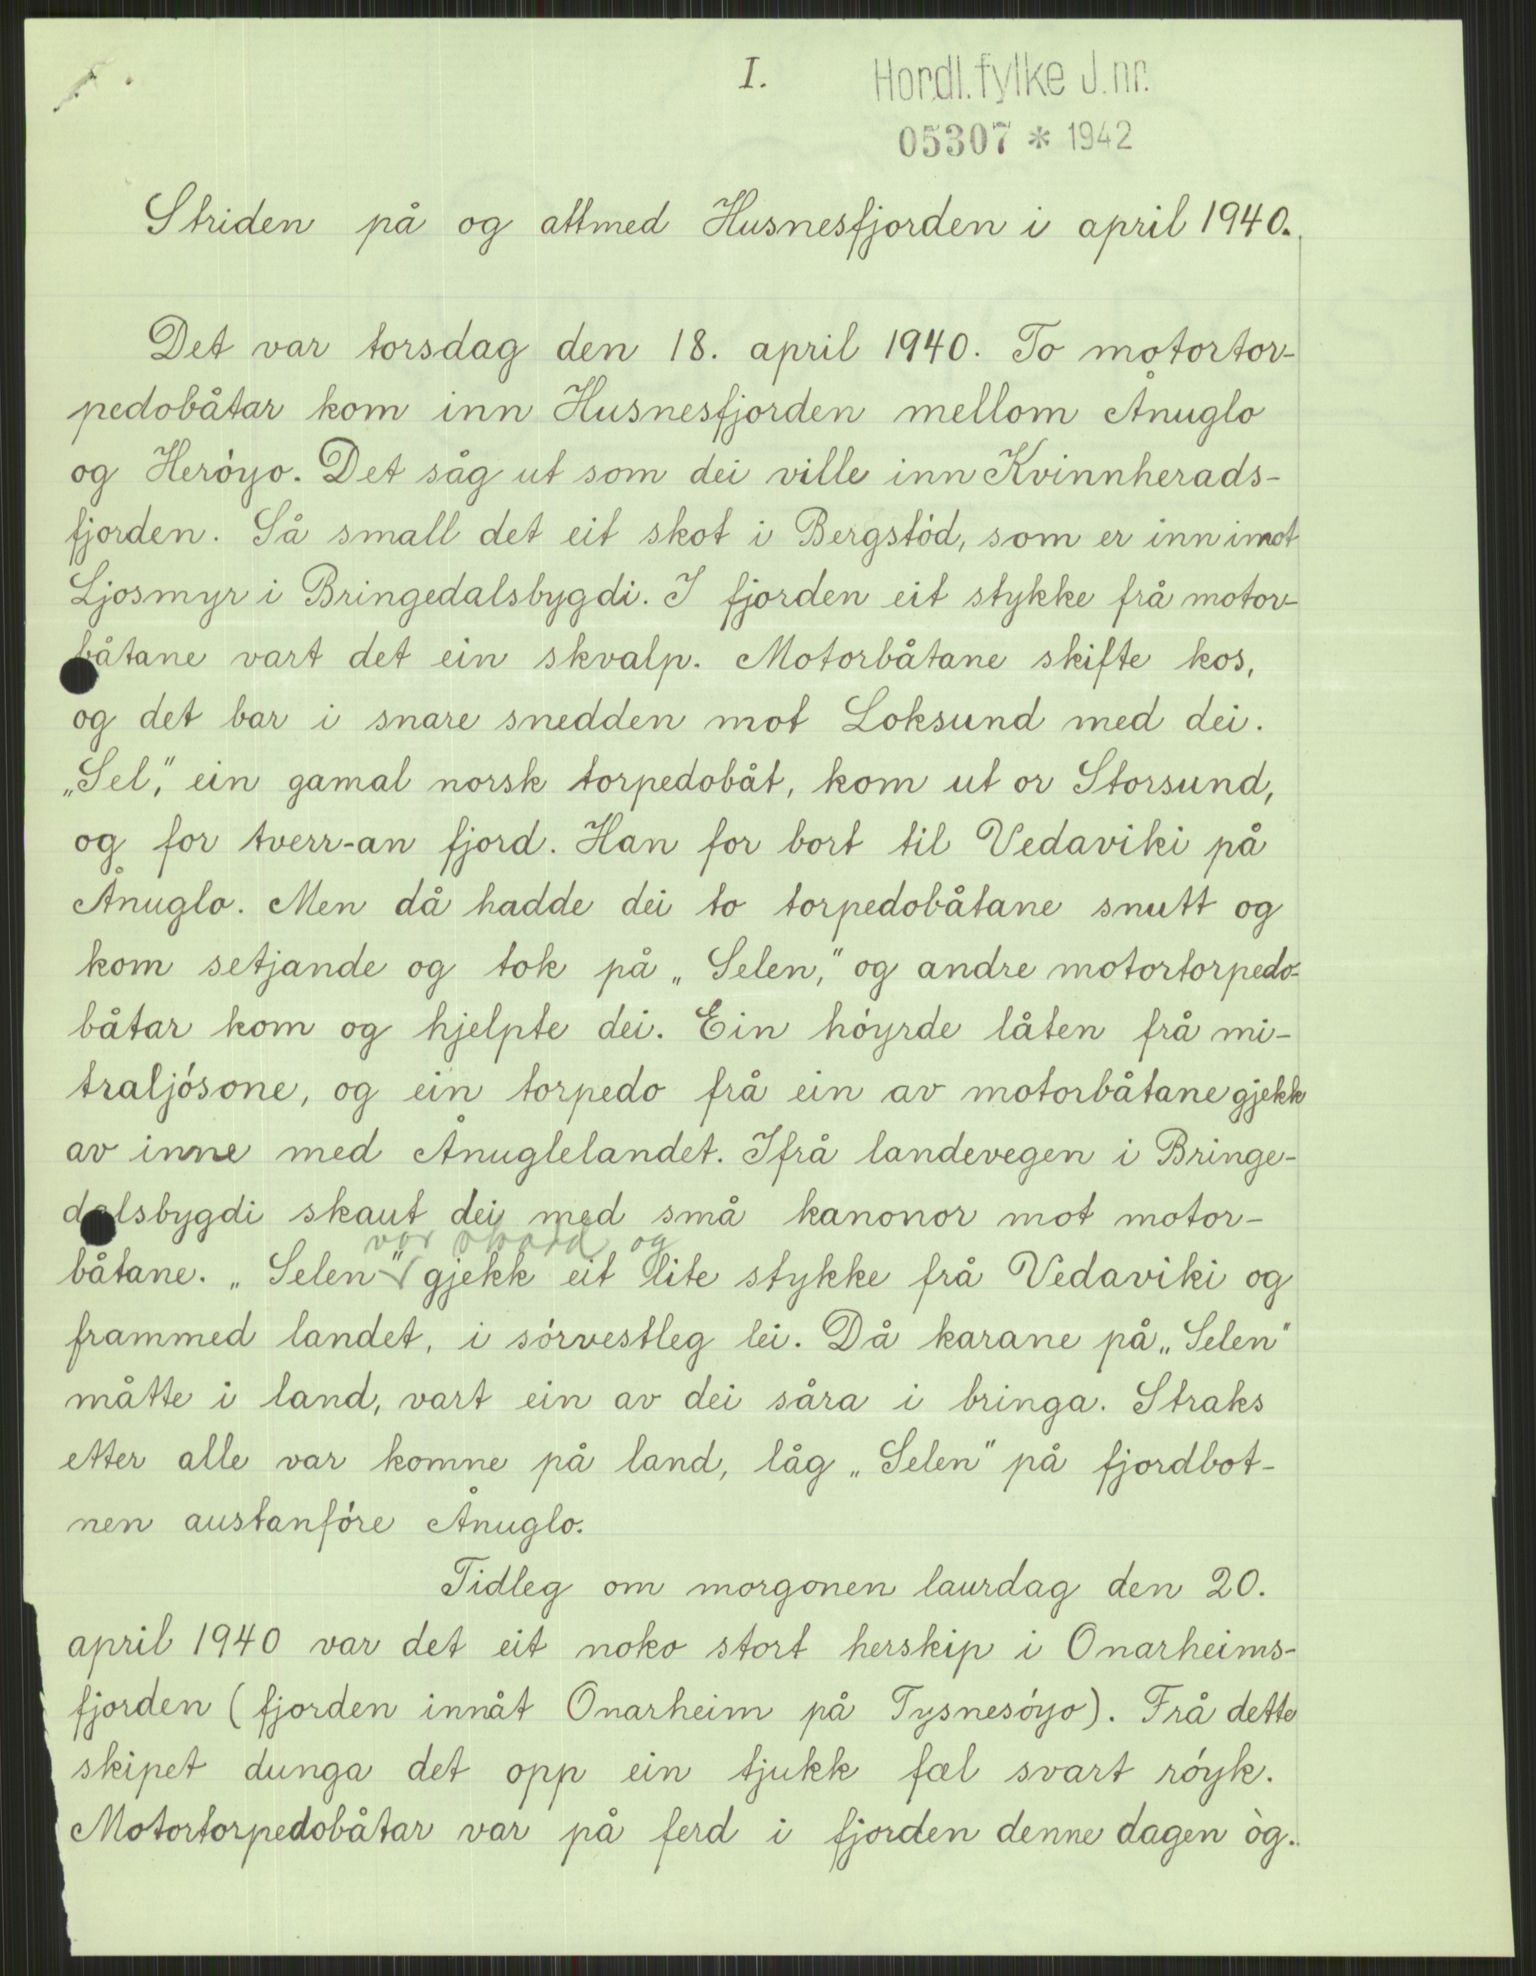 I.
Hordl. fylke J. nr.
05307 * 1942
Striden på og attmed Husnesfjorden i april 1940.
Det var torsdag den 18. april 1940. To motortor-
pedobåtar kom inn Husnesfjorden mellom Ånuglo
og Heróyo. Det såg ut som dei ville inn Kvinnherads-
fjorden. Så small det eit skot i Bergstód, som er inn imot
Ljosmyr i Bringedalsbygdi. I fjorden eit stykke frå motor-
båtane vart det ein skvalp. Motorbåtane skifte kos,
og det bar i snare snedden mot Loksund med dei.
„Sel," ein gamal norsk torpedobåt, kom ut or Storsund,
og for tverr-an fjord. Han for bort til Vedaviki på
Ånuglo. Men då hadde dei to torpedobåtane snutt og
kom setjande og tok på „Selen," og andre motortorpedo-
båtar kom og hjelpte dei. Ein hóyrde låten frå mi-
traljósone, og ein torpedo frå ein av motorbåtane gjekk
av inne med Ånuglelandet. Ifrå landevegen i Bringe-
dalsbygdi skaut dei med små kanonor mot motor-
var skadd og
båtane. „Selen" gjekk eit lite stykke frå Vedaviki og
frammed landet, i sórvestleg lei. Då karane på „Selen"
måtte i land, vart ein av dei såra i bringa. Straks
etter alle var komne på land, låg „Selen" på fjordbot-
nen austanfóre Ånuglo.
Tidleg om morgonen laurdag den 20.
april 1940 var det eit noko stort herskip i Onarheims-
fjorden (fjorden innåt Onarheim på Tysnesóyo). Frå dette
skipet dunga det opp ein tjukk fæl svart róyk.
Motortorpedobåtar var på ferd i fjorden denne dagen òg.